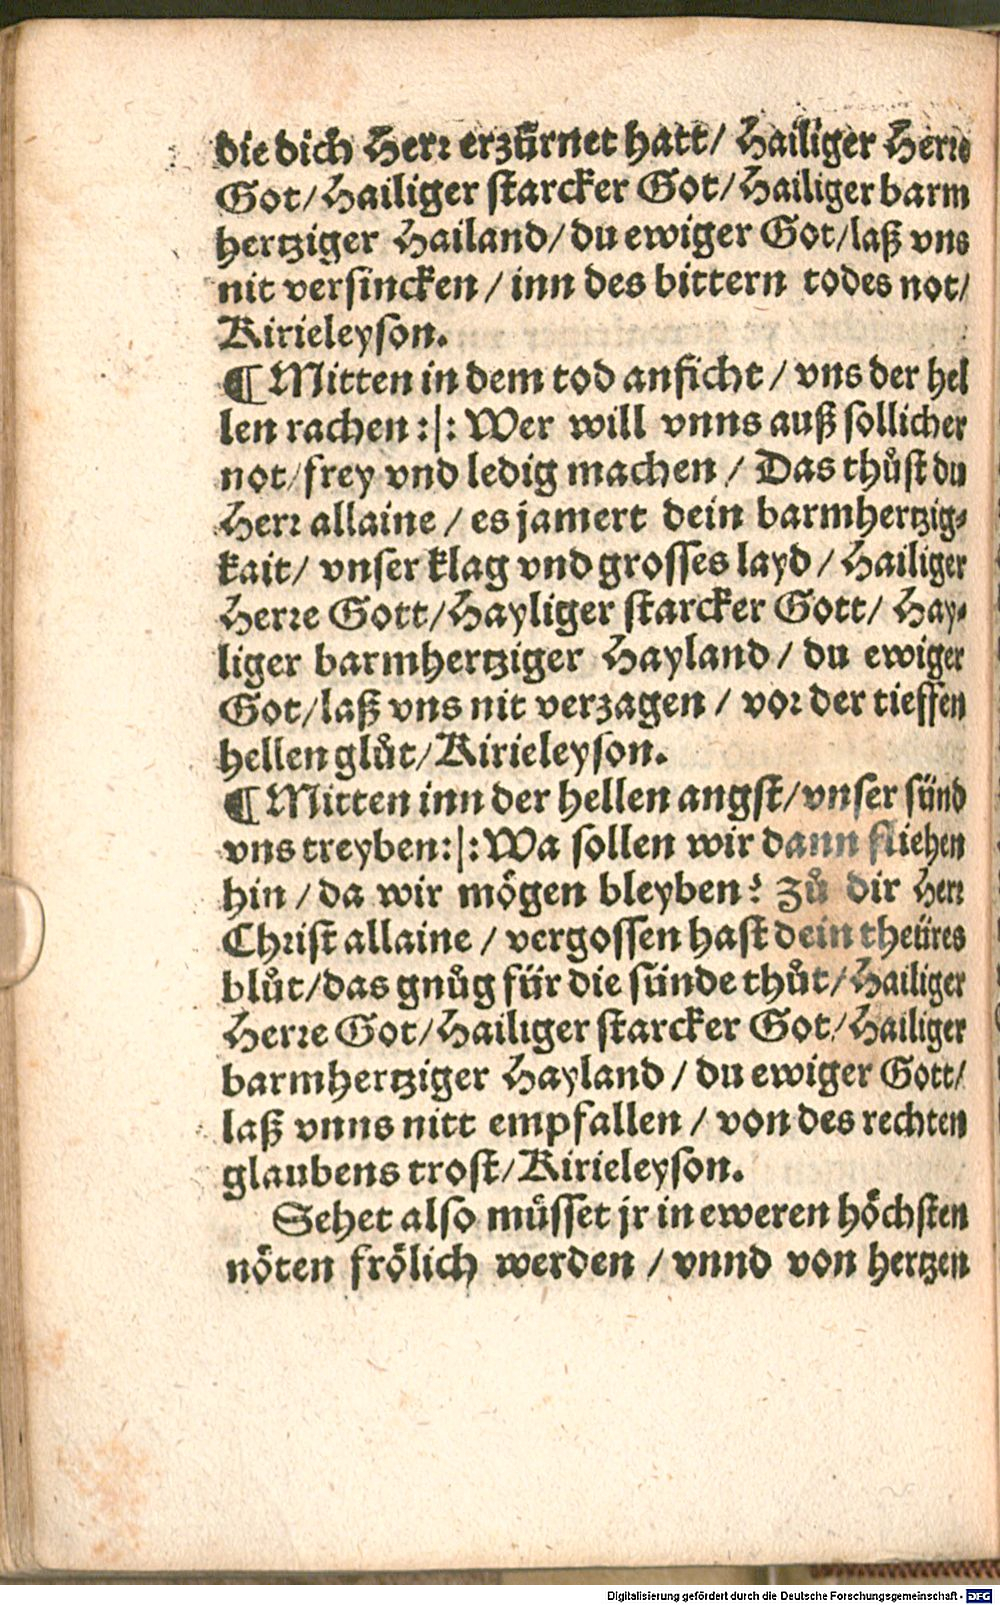 die dich Herr erzürnet hatt/ Hailiger Herre
Got/ Hailiger starcker Got/ Hailiger barm
hertziger Hailand/ du ewiger Got/ laß vns
nit versincken / inn des bittern todes not/
Kirieleyson.
¶ Mitten in dem tod anficht / vns der hel
len rachen :|: Wer will vnns auß sollicher
not/ frey vnd ledig machen / Das thůst du
Herr allaine / es jamert dein barmhertzig⸗
kait/ vnser klag vnd grosses layd / Hailiger
Herre Gott/ Hayliger starcker Gott/ Hay⸗
liger barmhertziger Hayland / du ewiger
Got/ laß vns nit verzagen / vor der tieffen
hellen glůt/ Kirieleyson.
¶ Mitten inn der hellen angst/ vnser sünd
vns treyben:|: Wa sollen wir dann fliehen
hin / da wir mögen bleyben? Zů dir Herr
Christ allaine / vergossen hast dein theüres
blůt/ das gnůg für die sünde thůt/ Hailiger
Herre Got/ Hailiger starcker Got/ Hailiger
barmhertziger Hayland / du ewiger Gott/
laß vnns nitt empfallen / von des rechten
glaubens trost/ Kirieleyson.
Sehet also můsset jr in eweren höchsten
nöten frölich werden / vnnd von hertzen
Digitalisierung gefördert durch die Deutsche Forschungsgemeinschaft - DFG